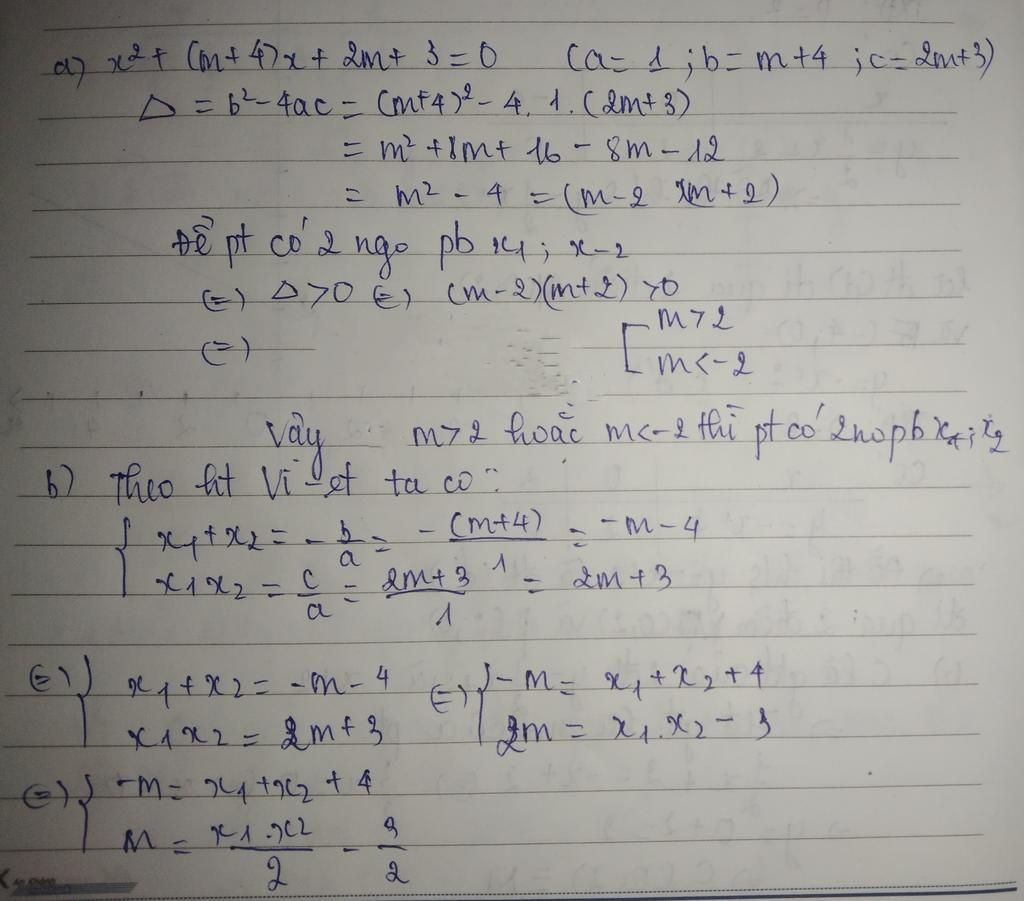 a) x² + (m+4)x + 2m + 3 = 0 (a = 1 ; b = m+4 ; c = 2m+3)
Δ = b² - 4ac = (m+4)² - 4. 1. (2m+3)
= m² + 8m + 16 - 8m - 12
= m² - 4 = (m-2)(m+2)
Để pt có 2 ngo pb x₁ ; x-2
(=) Δ > 0 (=) (m-2)(m+2) > 0
(=) [ m > 2
m < -2
Vậy m > 2 hoặc m < -2 thì pt có 2 no pb x₁ ; x₂
b) Theo ht Vi-et ta có :
{ x₁ + x₂ = -b/a = -(m+4)/1 = -m - 4
x₁x₂ = c/a = 2m+3/1 = 2m + 3
(=) { x₁ + x₂ = -m - 4 (=) { -m = x₁ + x₂ + 4
x₁x₂ = 2m + 3 2m = x₁.x₂ - 3
(=) { -m = x₁ + x₂ + 4
m = x₁.x₂/2 - 3/2